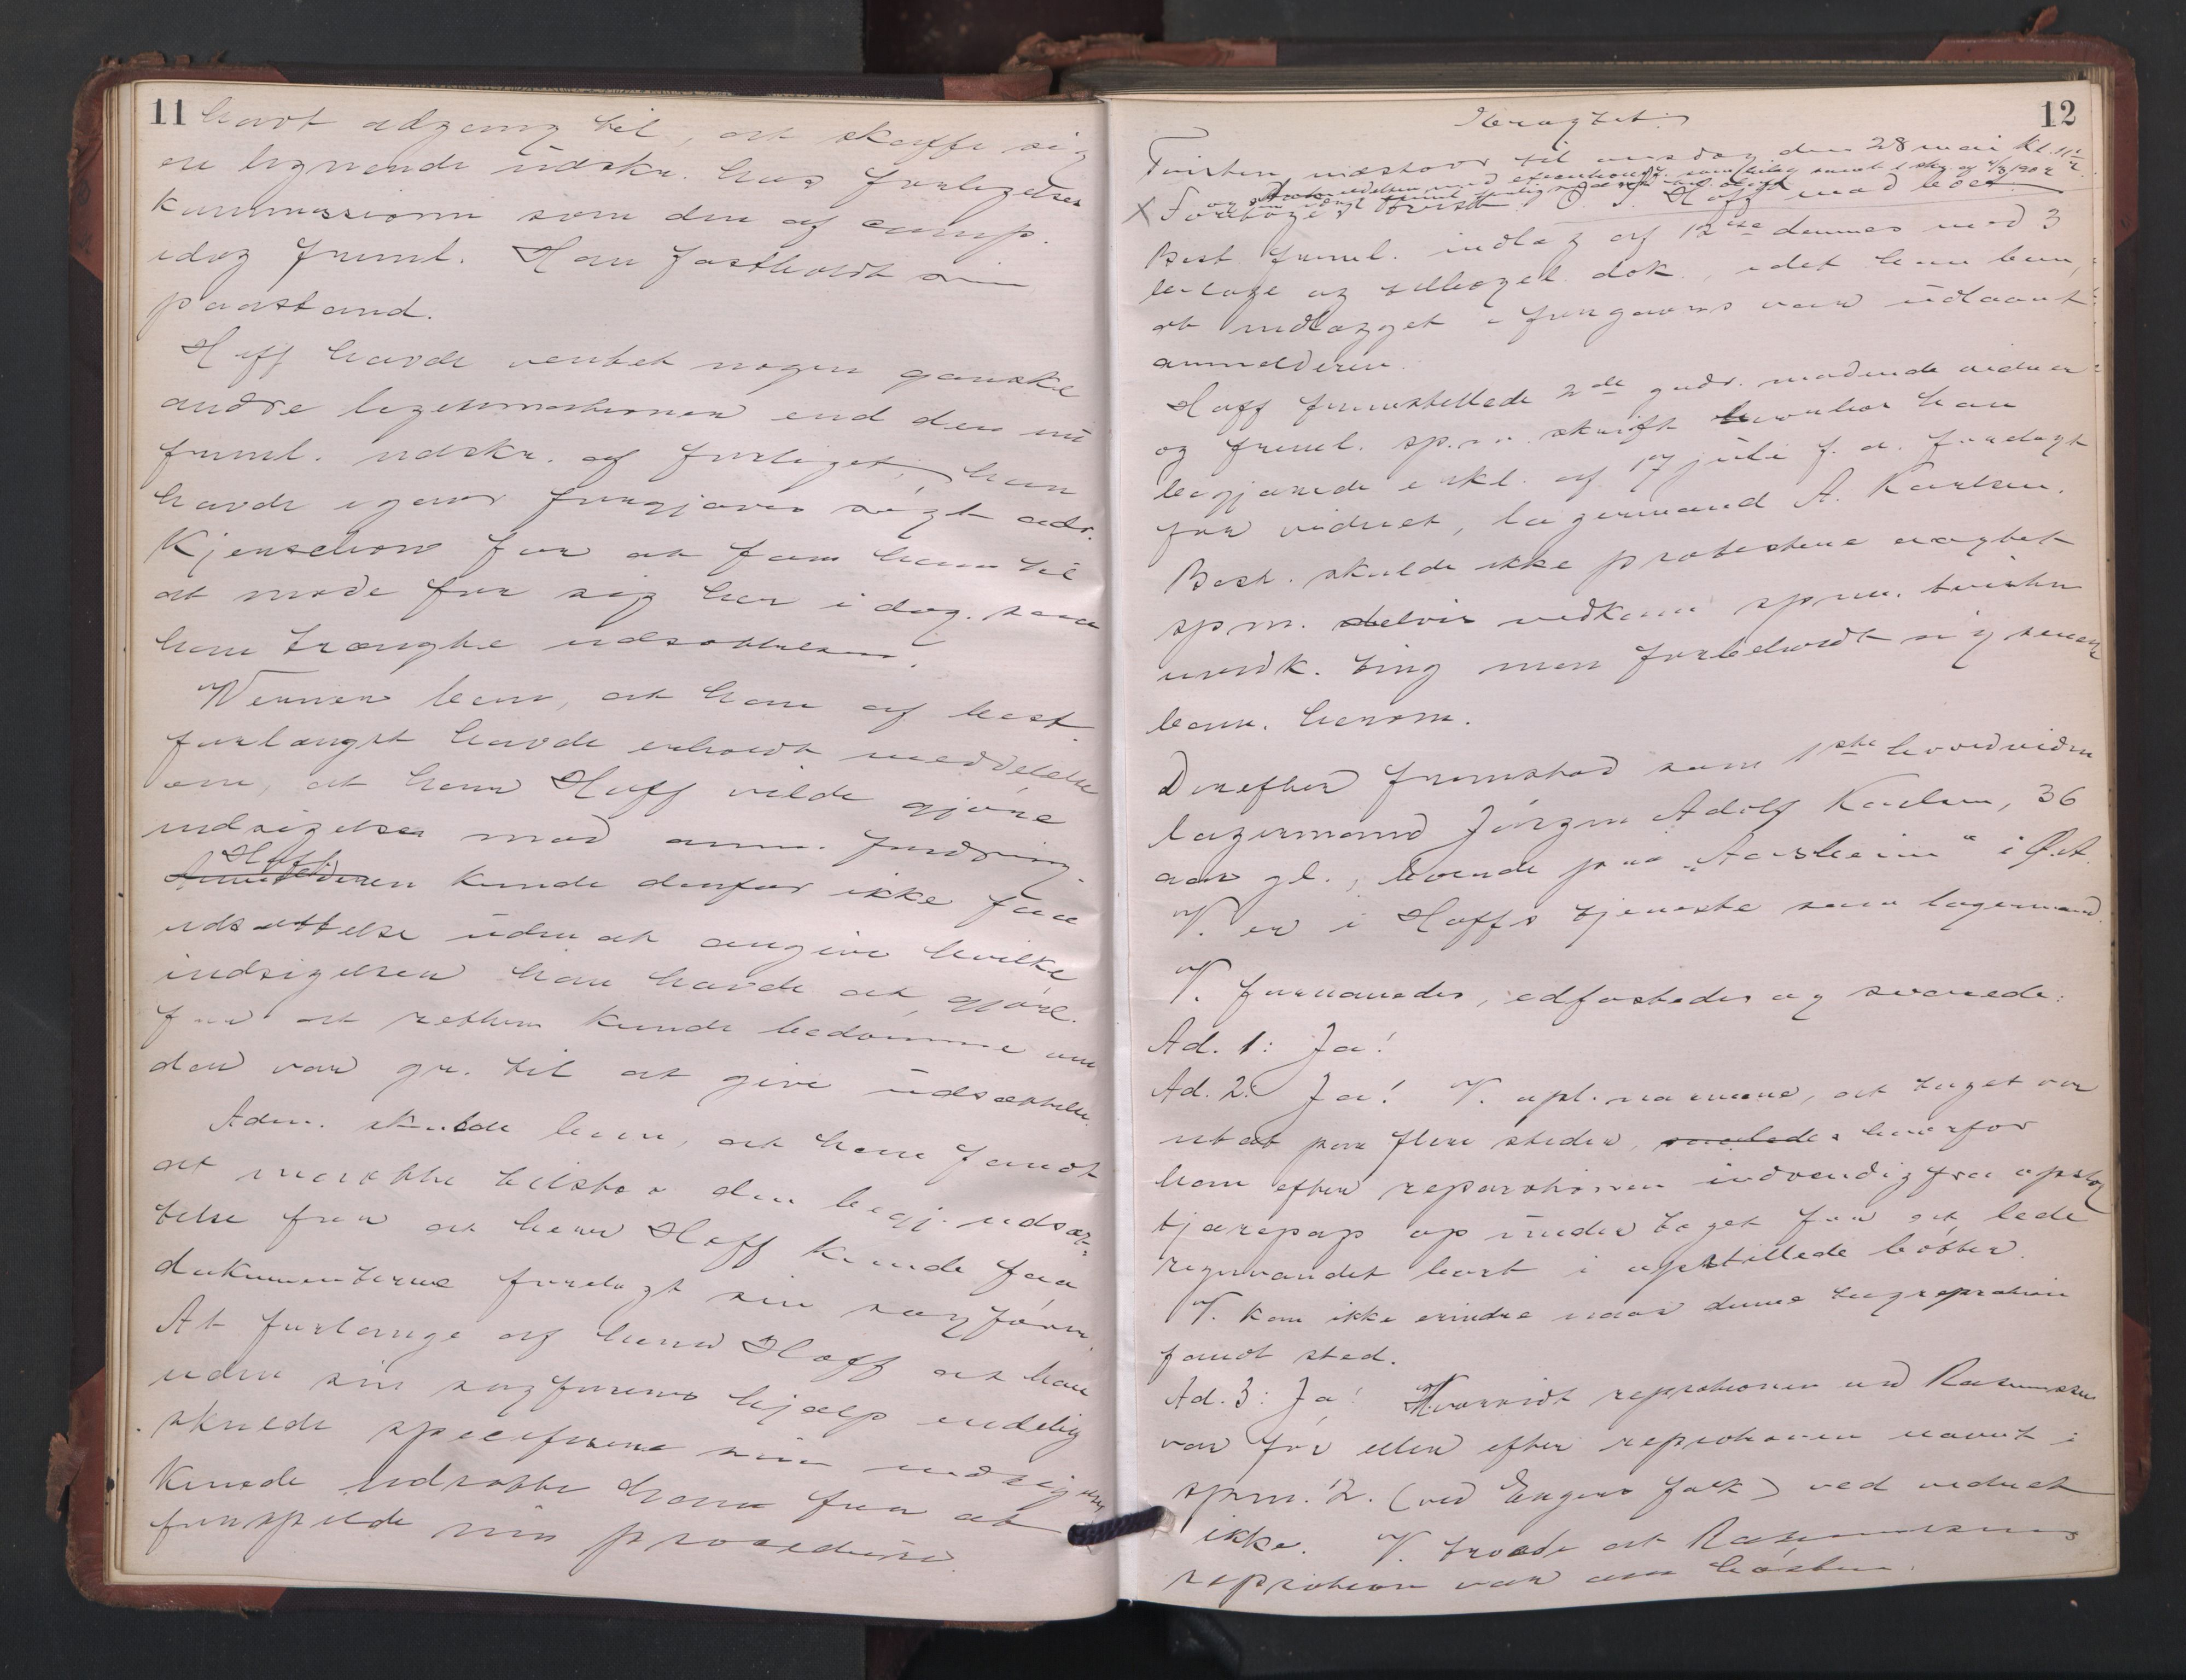 11
havt adgang til, at skaffe sig
en lignende udskr. hos forligelses
kommissionen som den af comp.
idag freml. Han fastholdt sin
paastand.
Hoff havde ventet nogen ganske
andre legitimationer end den nu
freml. udskr. af forliget; han
havde igaar forgjæves søgt adv.
Kjenschow for at faa ham til
at møde for sig her idag. saa
han trængte udsættelsen.
Wenner bem., at han af best.
forlængst havde erholdt meddelelse
om, at herr Hoff vilde gjøre
indsigelser mod anm. fordring.
Hoff
Anmelderen kunde derfor ikke faa
udsættelse uden at angive hvilke
indsigelser han havde at gjøre.
for at retten kunde bedømme om
der var gr. til at give udsættelse.
Adm. skulde bem., at han fandt
at maatte tilstaa den begj. udsæt-
telse for at herr Hoff kunde faa
dokumenterne forelagt sin sagfører.
At forlange af herr Hoff at han
uden sin sagførers hjælp endelig
skulde specificere sine indsigelser
kunde udsætte ham for at
forspilde sin procedure.
12
Eragtet:
Tvisten udstaar til onsdag den 28 mai kl. 11
X Foretoges tvist: O. J. Hoff mod boet
Best. freml. indlæg af 12te dennes med 3
bilage og tilhøgel. dok., idet han bem.,
at indlægget i forgaars var udlaant
anmelderen.
Hoff fremstillede 2de godv. mødende vidner
og freml. sp.m. skrift hvorhos han
begjærede erkl. af 17 juli f. a. forelagt
for vidnet, lagermand A. Karlsen.
Best. skulde ikke protestere uagtet
spm. delvis vedkom tvisten
uvedk. ting men forbeholdt sig senere
bem. herom.
Derefter fremstod som 1ste hovedvidne
lagermand Jørgen Adolf Karlsen, 36
aar gl., boende paa "Aasheim" i Ø. A.
V. er i Hoffs tjeneste som lagermand.
V. formanedes, edfæstedes og svarede:
Ad. 1: Ja!
Ad. 2: Ja! V. opl. nærmere, at taget var
utæt paa flere steder, saaledes hvorfor
han efter reparationen indvendig fra opslog
tjærepap op under taget for at lede
regnvandet bort i opstillede bøtter.
V. kan ikke erindre naar denne tagrepration
fandt sted.
Ad. 3: Ja! Hvorvidt reprationen ved Rasmussen
var før eller efter reprationen nævnt i
spm. 2. (ved Engers folk) ved vidnet
ikke. V. troede at Rasmussens
repration var om høsten.